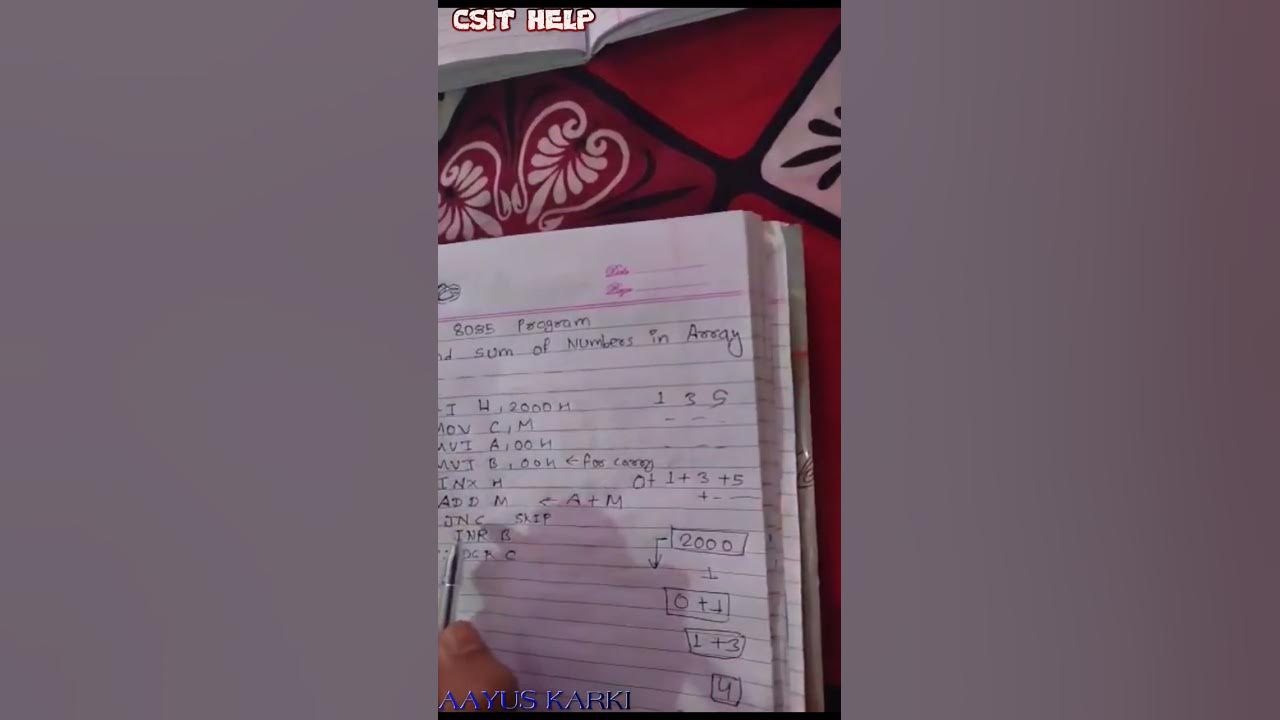 CSIT HELP
Date
Page
8085 Program
nd sum of Numbers in Array
I H, 2000H
1 3 5
MOV C, M
MVI A, 00H
MVI B, 00H ← for carry
INX H
0+ 1+ 3 +5
ADD M ← A + M
JNC SKIP
INR B
2000
DCR C
1
0 +1
1 +3
4
AAYUS KARKI